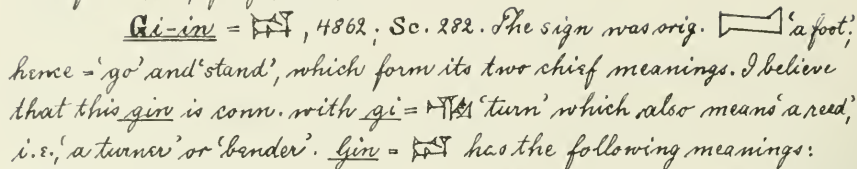 Gi-in = 𒁺, 4862; Sc. 282. The sign was orig. 'a foot';
hence = 'go' and 'stand', which form its two chief meanings. I believe
that this gin is conn. with gi = 𒄀 'turn' which also means 'a reed',
i.e., 'a turner' or 'bender'. Gin = 𒁺 has the following meanings: